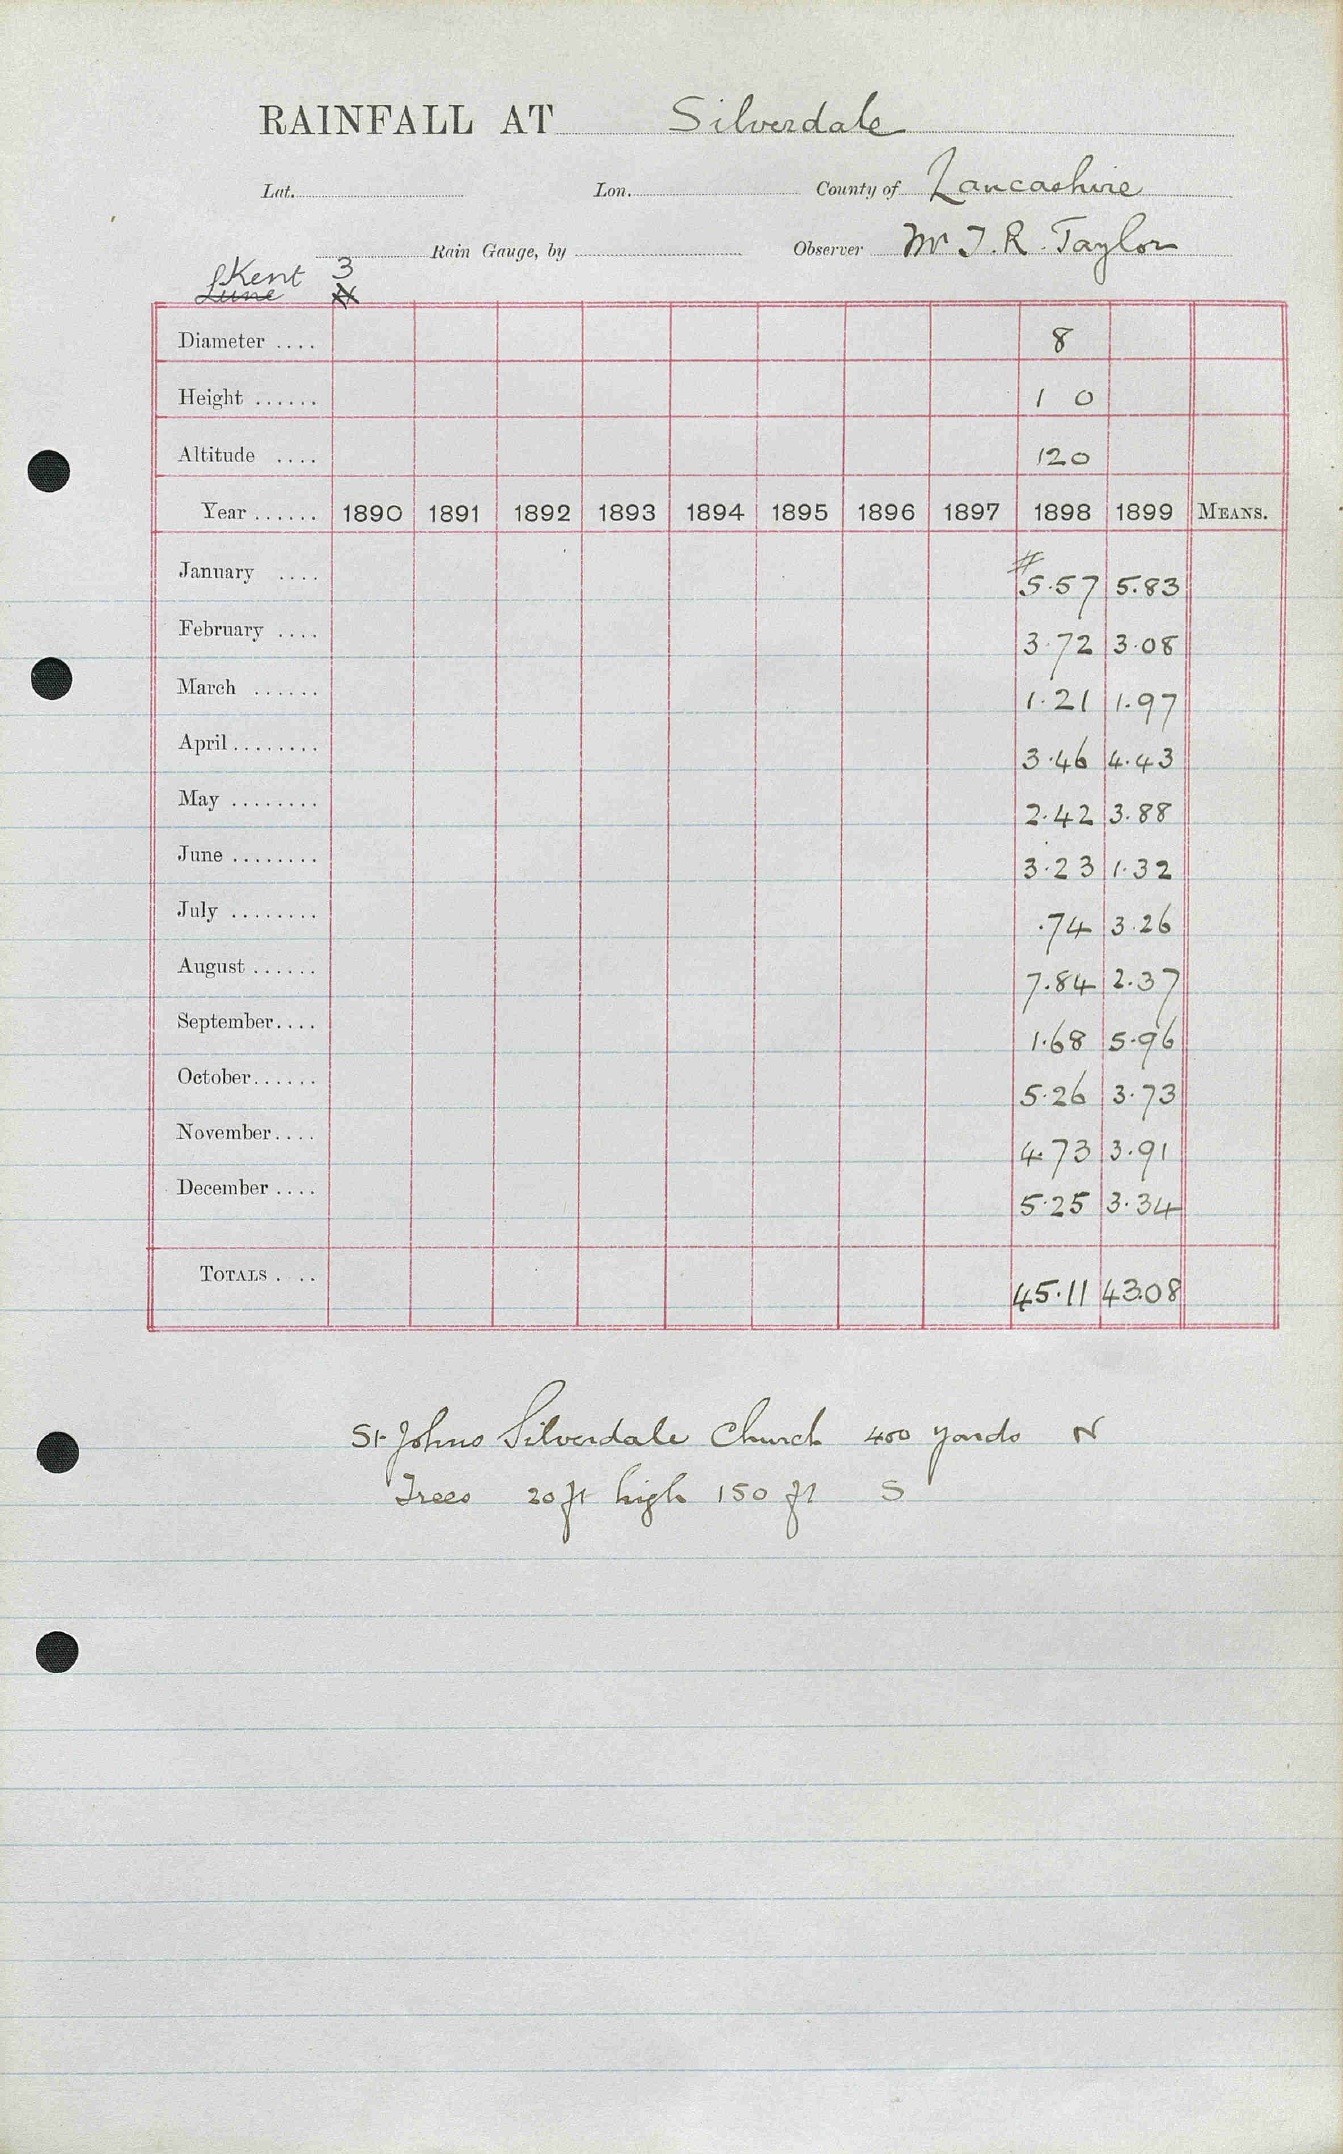 RAINFALL AT Silverdale
Lat. Lon. County of Lancashire
Rain Gauge, by Observer Mr T. R. Taylor
Kent 3
Lune
Diameter .... 8
Height ...... 1 0
Altitude .... 120
Year ...... 1890 1891 1892 1893 1894 1895 1896 1897 1898 1899 MEANS.
January .... # 5.57 5.83
February .... 3.72 3.08
March ...... 1.21 1.97
April ........ 3.46 4.43
May ........ 2.42 3.88
June ........ 3.23 1.32
July ........ .74 3.26
August ...... 7.84 2.37
September.... 1.68 5.96
October...... 5.26 3.73
November.... 4.73 3.91
December .... 5.25 3.34
TOTALS .... 45.11 43.08
St Johns Silverdale Church 400 yards N
Trees 20 ft high 150 ft S